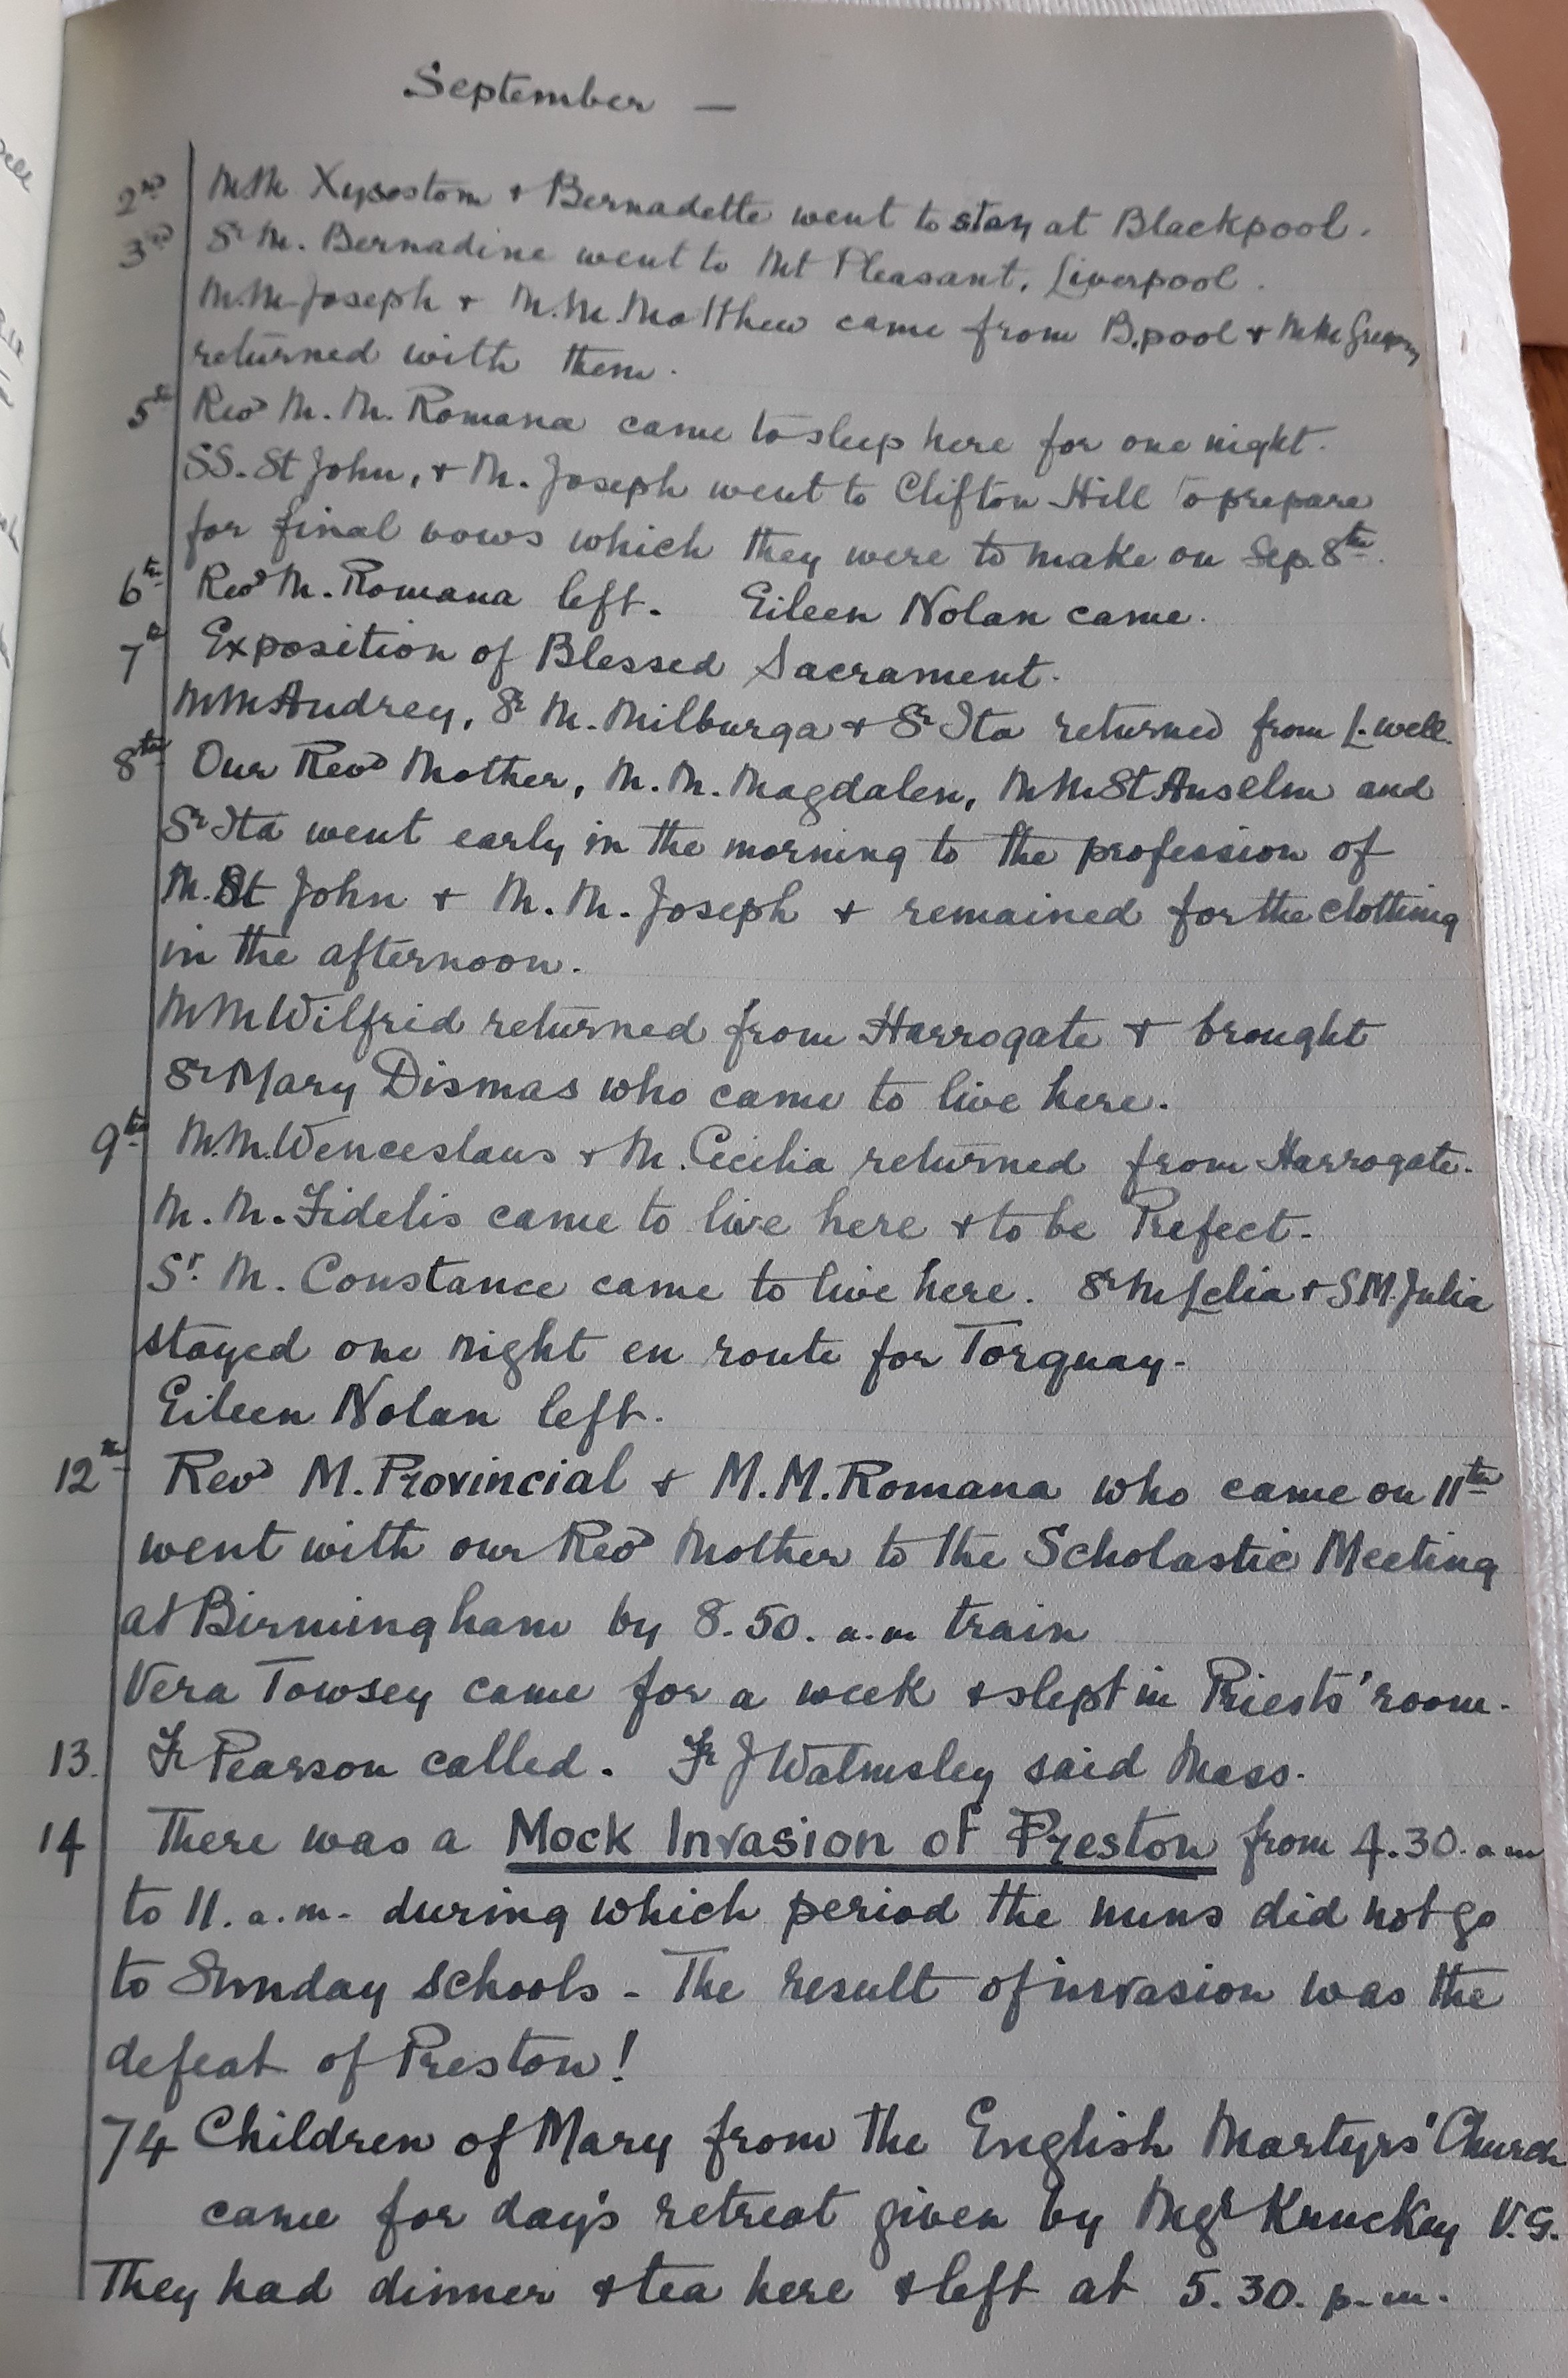 September —
2nd M.M. Xysostom + Bernadette went to stay at Blackpool.
3rd Sr M. Bernadine went to Mt Pleasant, Liverpool.
M.M. Joseph + M.M. Matthew came from B.pool + M.M. Gregory
returned with them.
5th Revd M. M. Romana came to sleep here for one night.
SS. St John, + M. Joseph went to Clifton Hill to prepare
for final vows which they were to make on Sep. 8th.
6th Revd M. Romana left. Eileen Nolan came.
7th Exposition of Blessed Sacrament.
M M Audrey, Sr M. Milburga + Sr Ita returned from L. well.
8th Our Revd Mother, M. M. Magdalen, M M St Anselm and
Sr Ita went early in the morning to the profession of
M. St John + M. M. Joseph + remained for the clothing
in the afternoon.
M M Wilfrid returned from Harrogate + brought
Sr Mary Dismas who came to live here.
9th M.M. Wenceslaus + M. Cecilia returned from Harrogate.
M. M. Fidelis came to live here + to be Prefect.
Sr. M. Constance came to live here. Sr M Lelia + S M. Julia
stayed one night en route for Torquay.
Eileen Nolan left.
12th Revd M. Provincial + M.M. Romana who came on 11th
went with our Revd Mother to the Scholastic Meeting
at Birmingham by 8.50. a.m train
Vera Towsey came for a week + slept in Priests' room.
13. Fr Pearson called. Fr J Walmsley said Mass.
14 There was a Mock Invasion of Preston from 4.30. a m
to 11. a.m. during which period the nuns did not go
to Sunday schools - The result of invasion was the
defeat of Preston!
74 Children of Mary from the English Martyrs' Church
came for day's retreat given by Mgr Kruckey V.G.
They had dinner + tea here + left at 5.30. p.m.